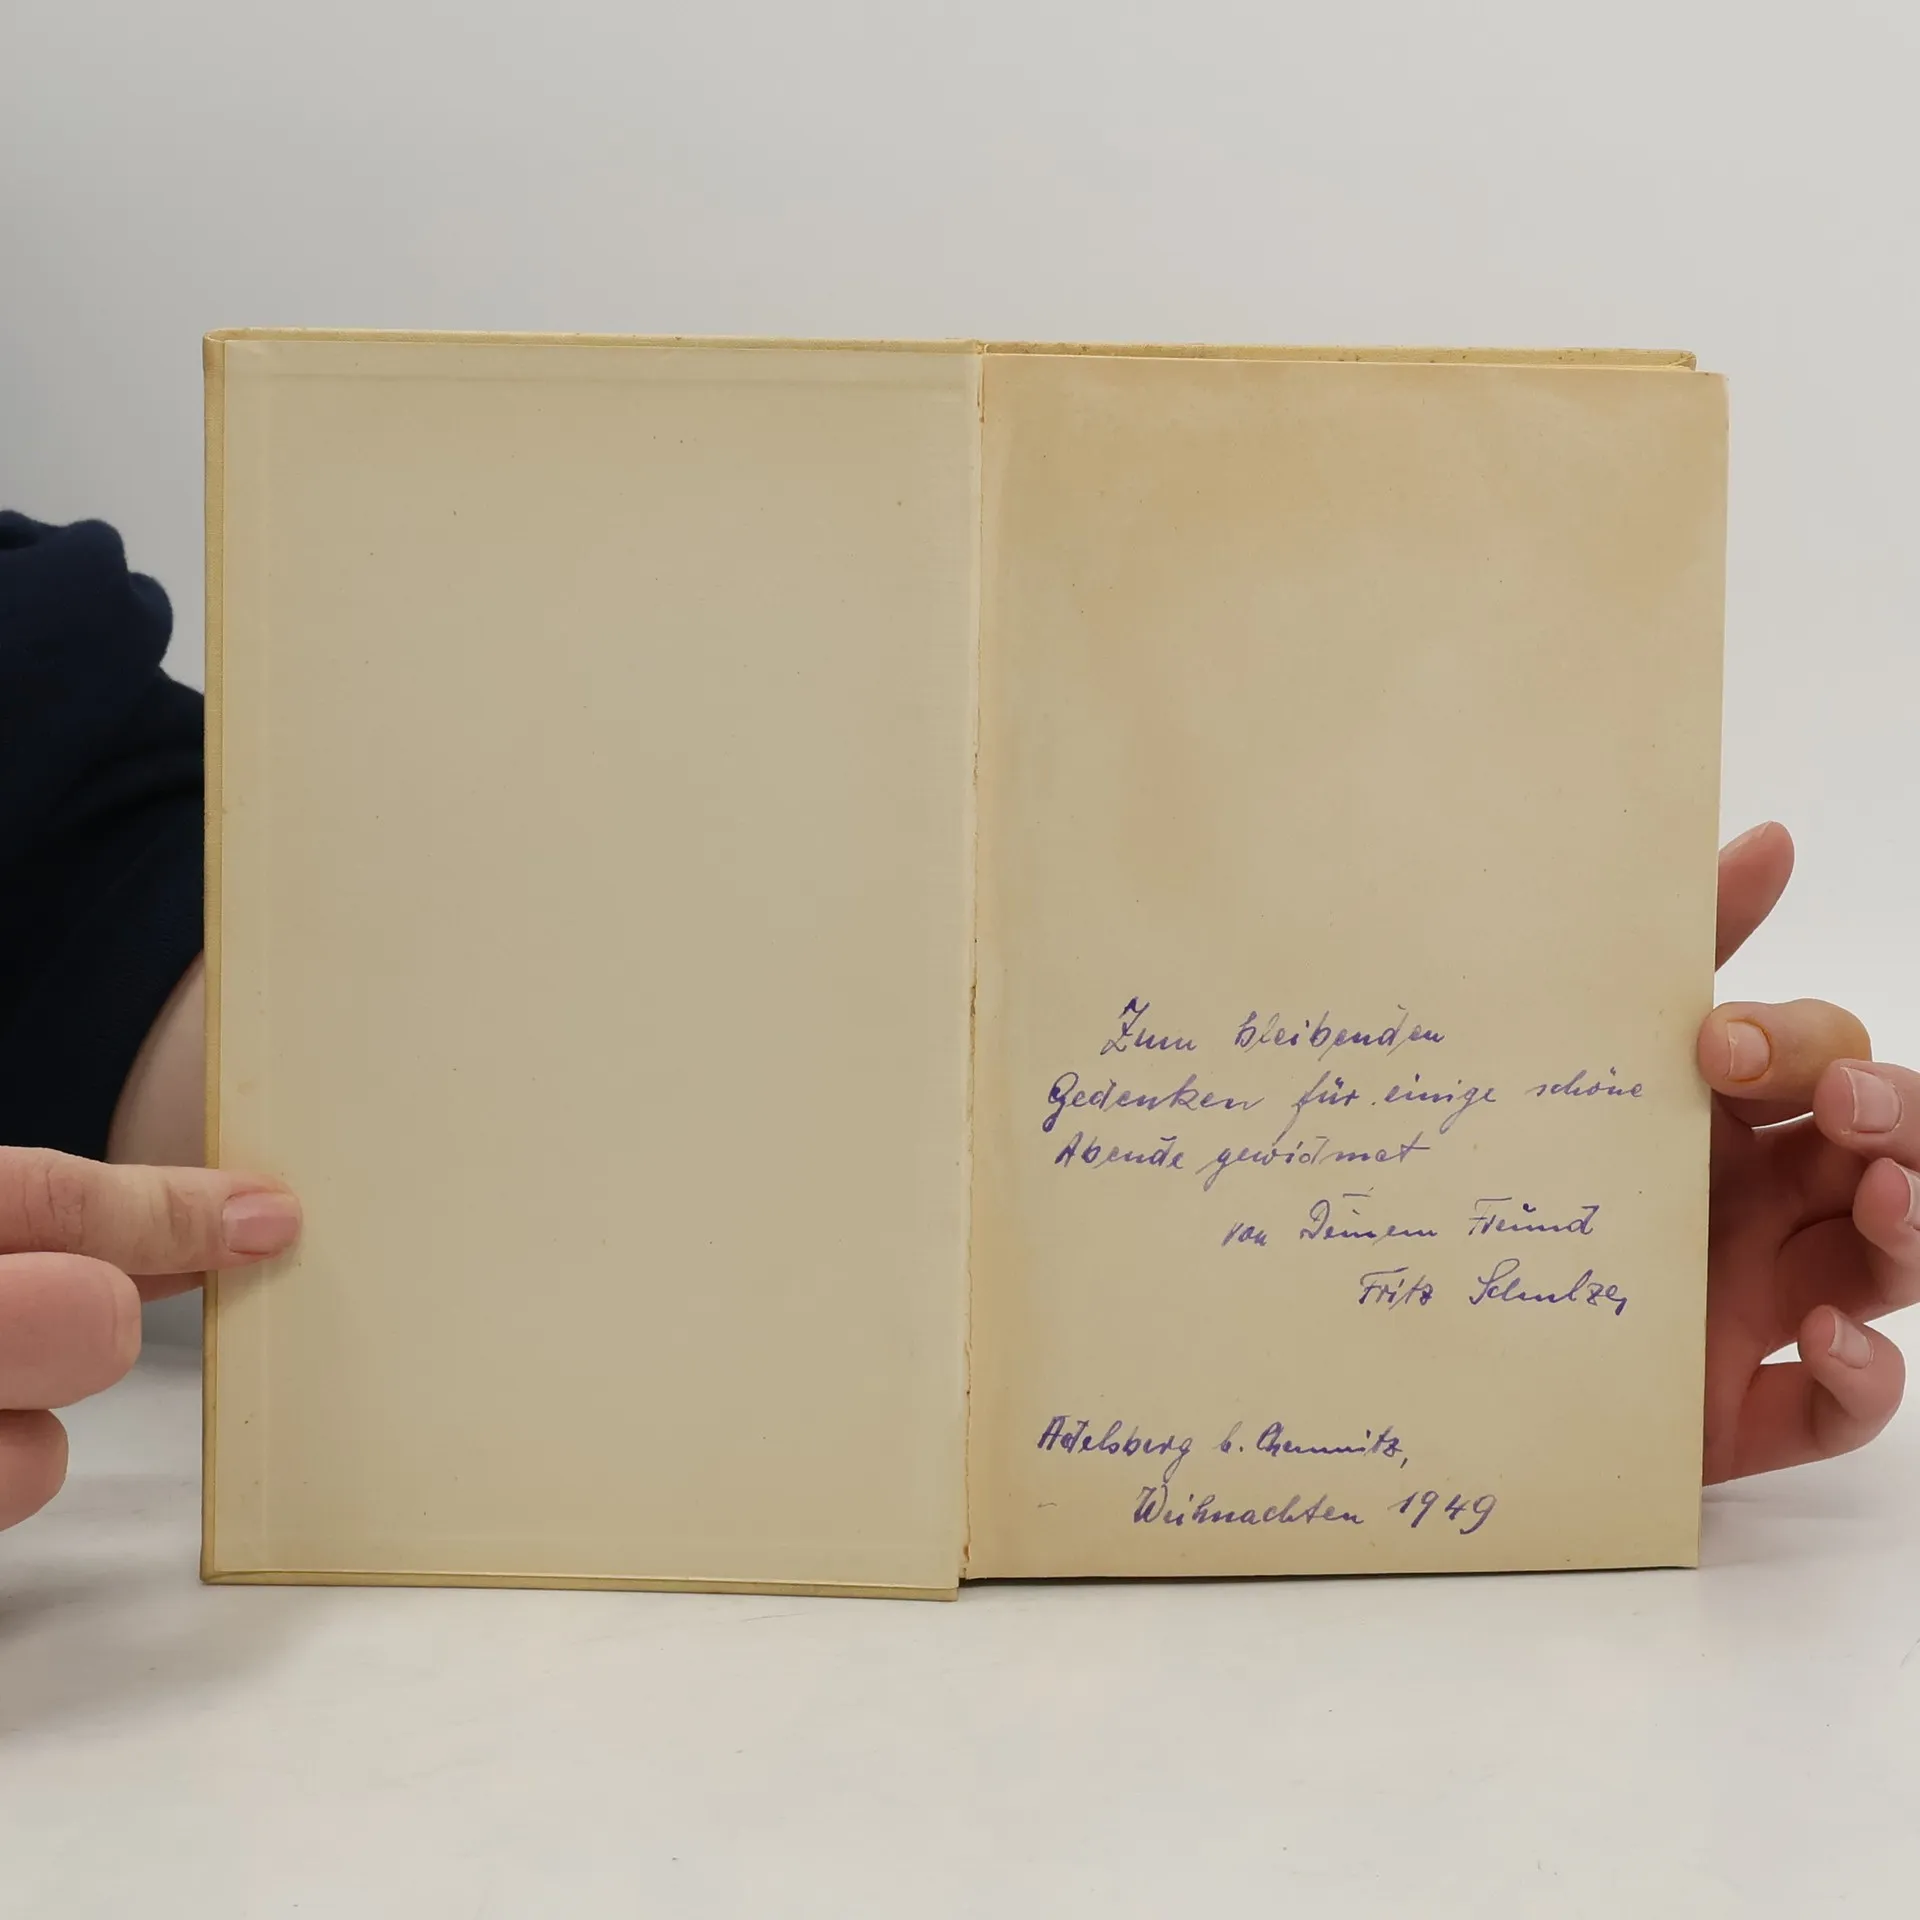 Zum bleibenden
Gedenken für einige schöne
Abende gewidmet
von Deinem Freund
Fritz Schulze,
Adelsberg b. Chemnitz,
Weihnachten 1949